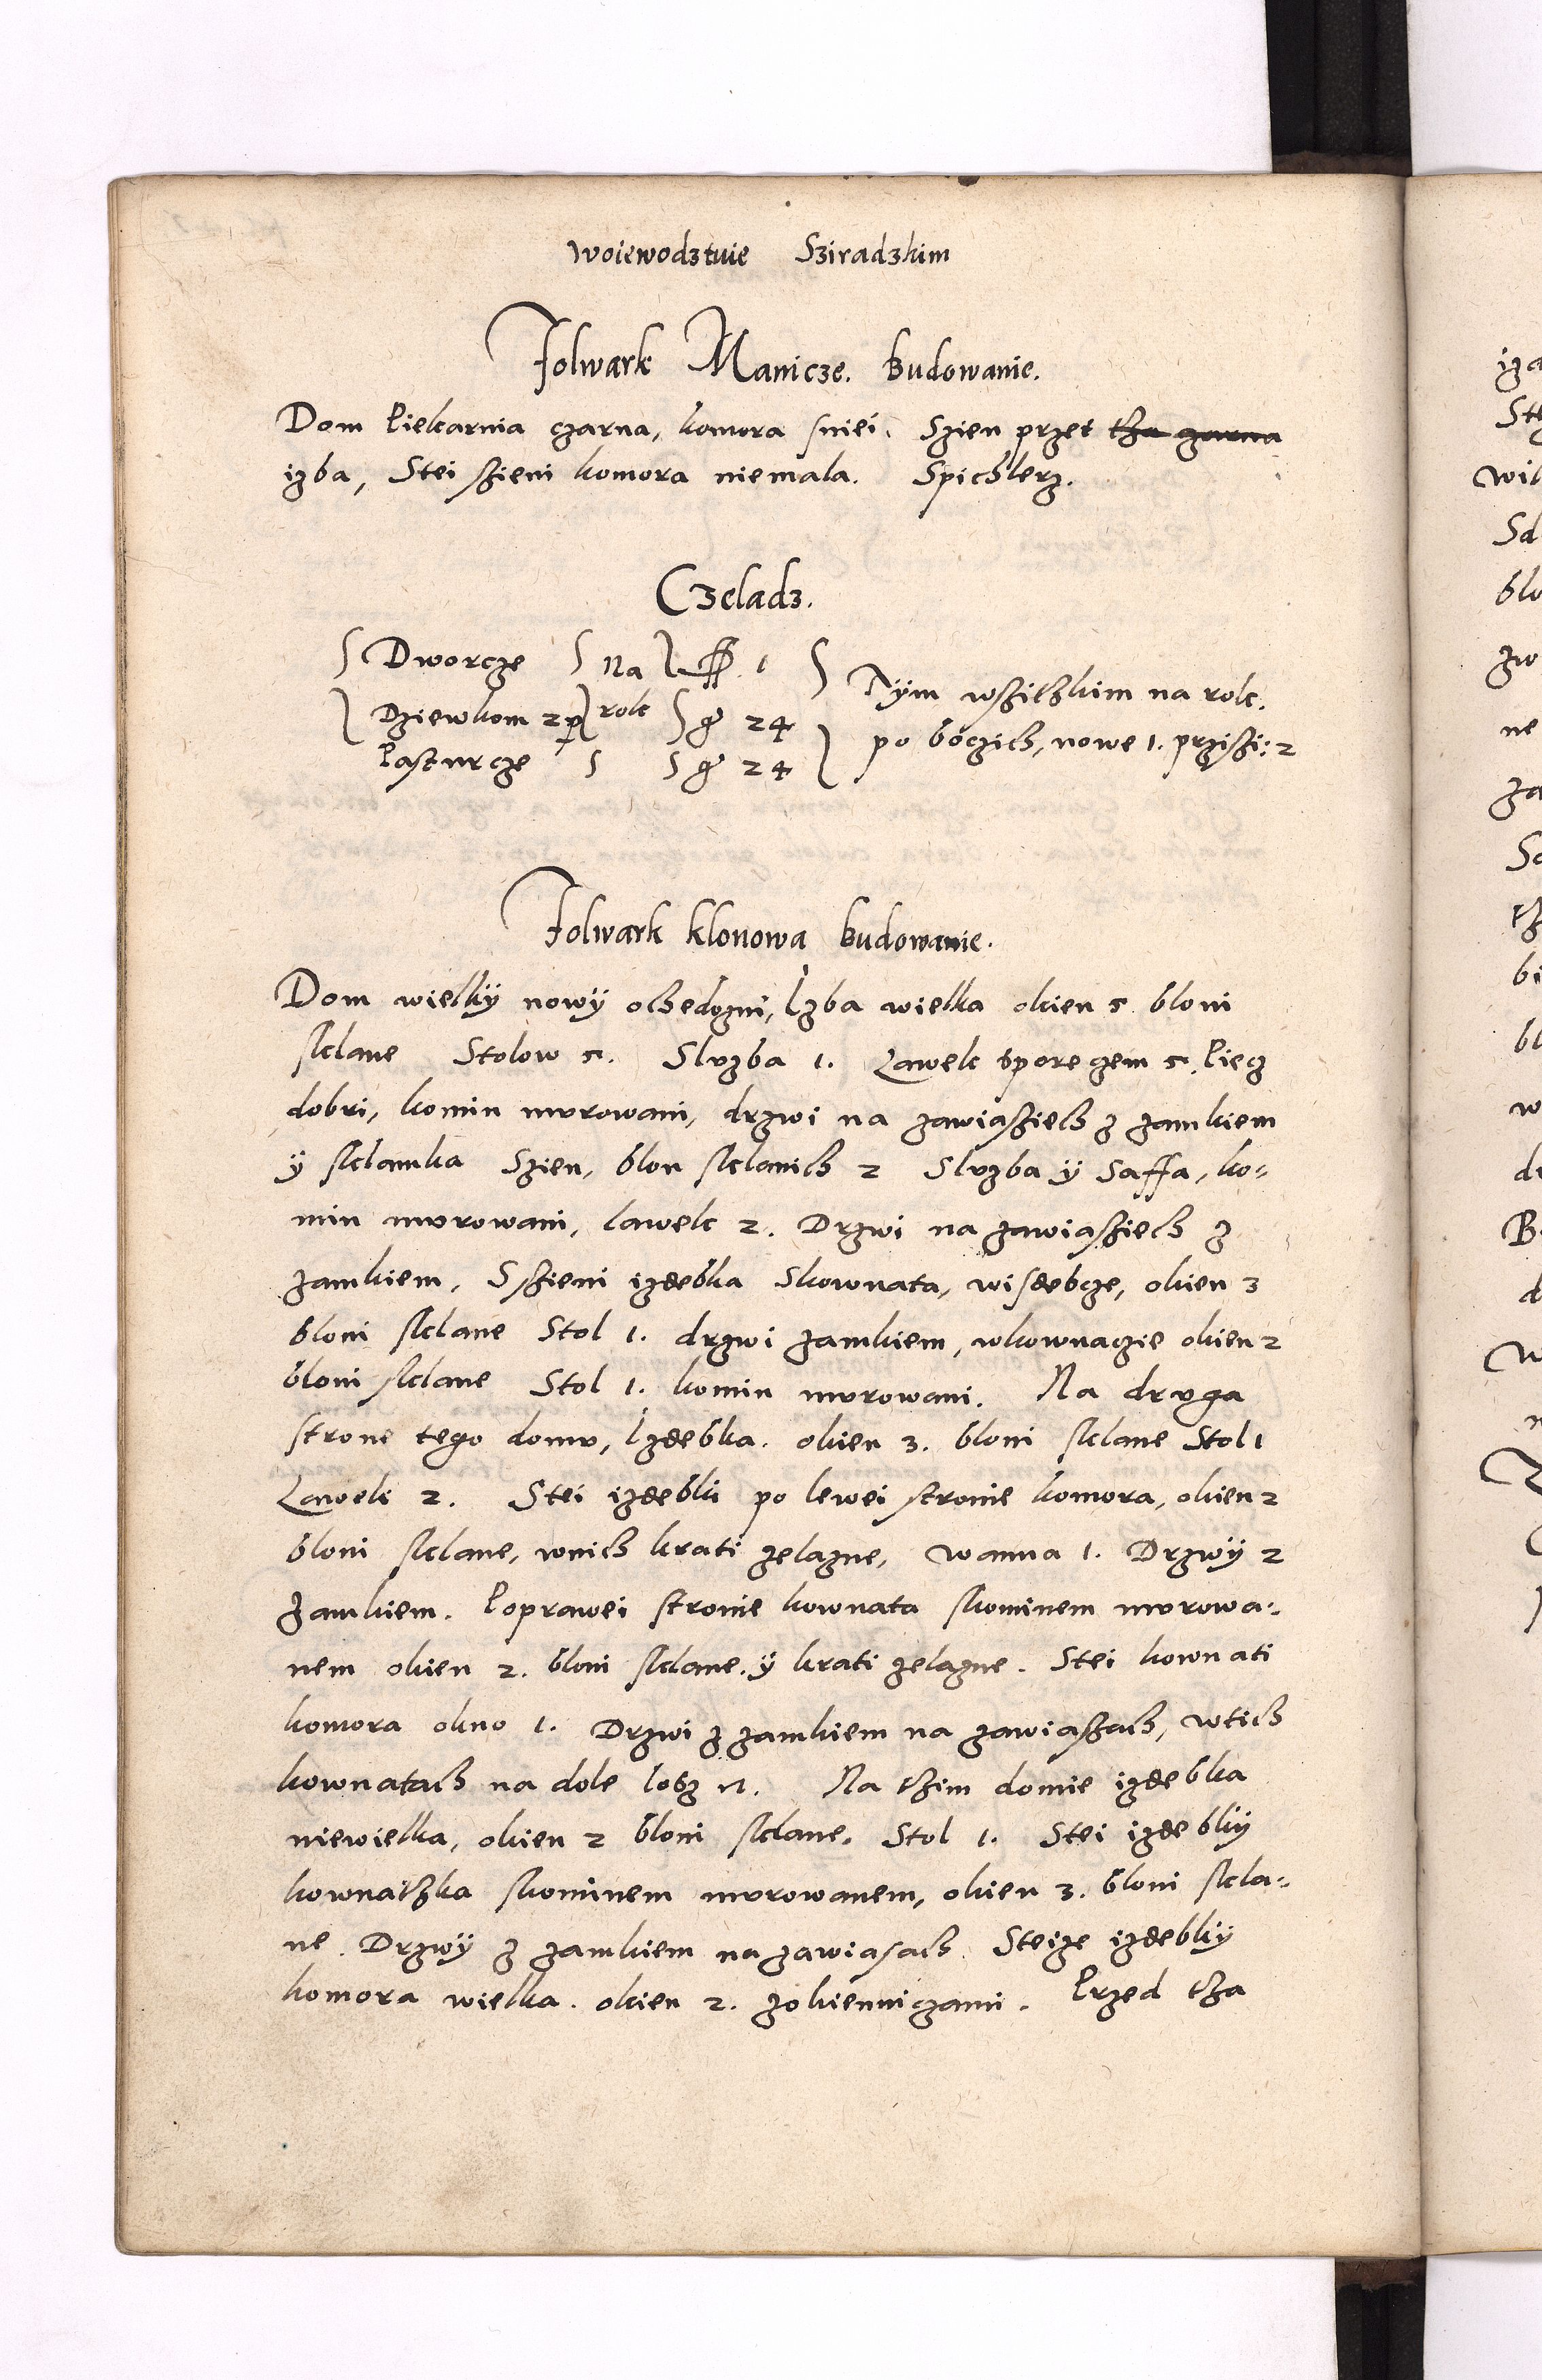 woiewodztwie Sziradzkim
Folwark Manicze. Budowanie.
Dom Piekarnia czarna, komora sniei. Szien przet tha zarna
izba, Stei szieni komora niemala. Spichlerz.
Czeladz.
Dworcze Na 1
Dziewkom 2 p role g 24
Pasturcze g 24
Tym wszithkim na role.
po boczich, nowe 1. prziszi: 2
Folwark klonowa budowanie.
Dom wielky nowy ochedozni, Izba wielka okien 5 bloni
sklane Stolow 5. Sluzba 1. Lawek sporeczem 5. Piecz
dobri, komin murowani, drzwi na zawiasziech z zamkiem
y sklamka Szien, blon sklanich 2 Sluzba y Saffa, ko-
min murowani, lawek 2. Drzwi na zawiasziech z
zamkiem. S szieni izdebka Skownata, wisdebcze, okien 3
bloni sklane Stol 1. drzwi zamkiem, wkownaczie okien 2
bloni sklane Stol 1. komin murowani. Na druga
strone tego domu, Izdebka. okien 3. bloni sklane Stol 1
Lawek 2. Stei izdebki po lewei stronie komora, okien 2
bloni sklane, wnich krati zelazne, wanna 1. Drzwy 2
zamkiem. Poprawei stronie kownata skominem murowa-
nem okien 2. bloni sklane. y krati zelazne. Stei kownati
komora okno 1. Drzwi z zamkiem na zawiaszach, wtich
kownatach na dole losz 11. Na thim domie izdebka
niewielka, okien 2 bloni sklane. Stol 1. Stei izdebky
kownathka skominem murowanem, okien 3. bloni skla-
ne. Drzwy z zamkiem na zawiasach. Steize izdebky
komora wielka. okien 2. zokienniczami. Przed tha